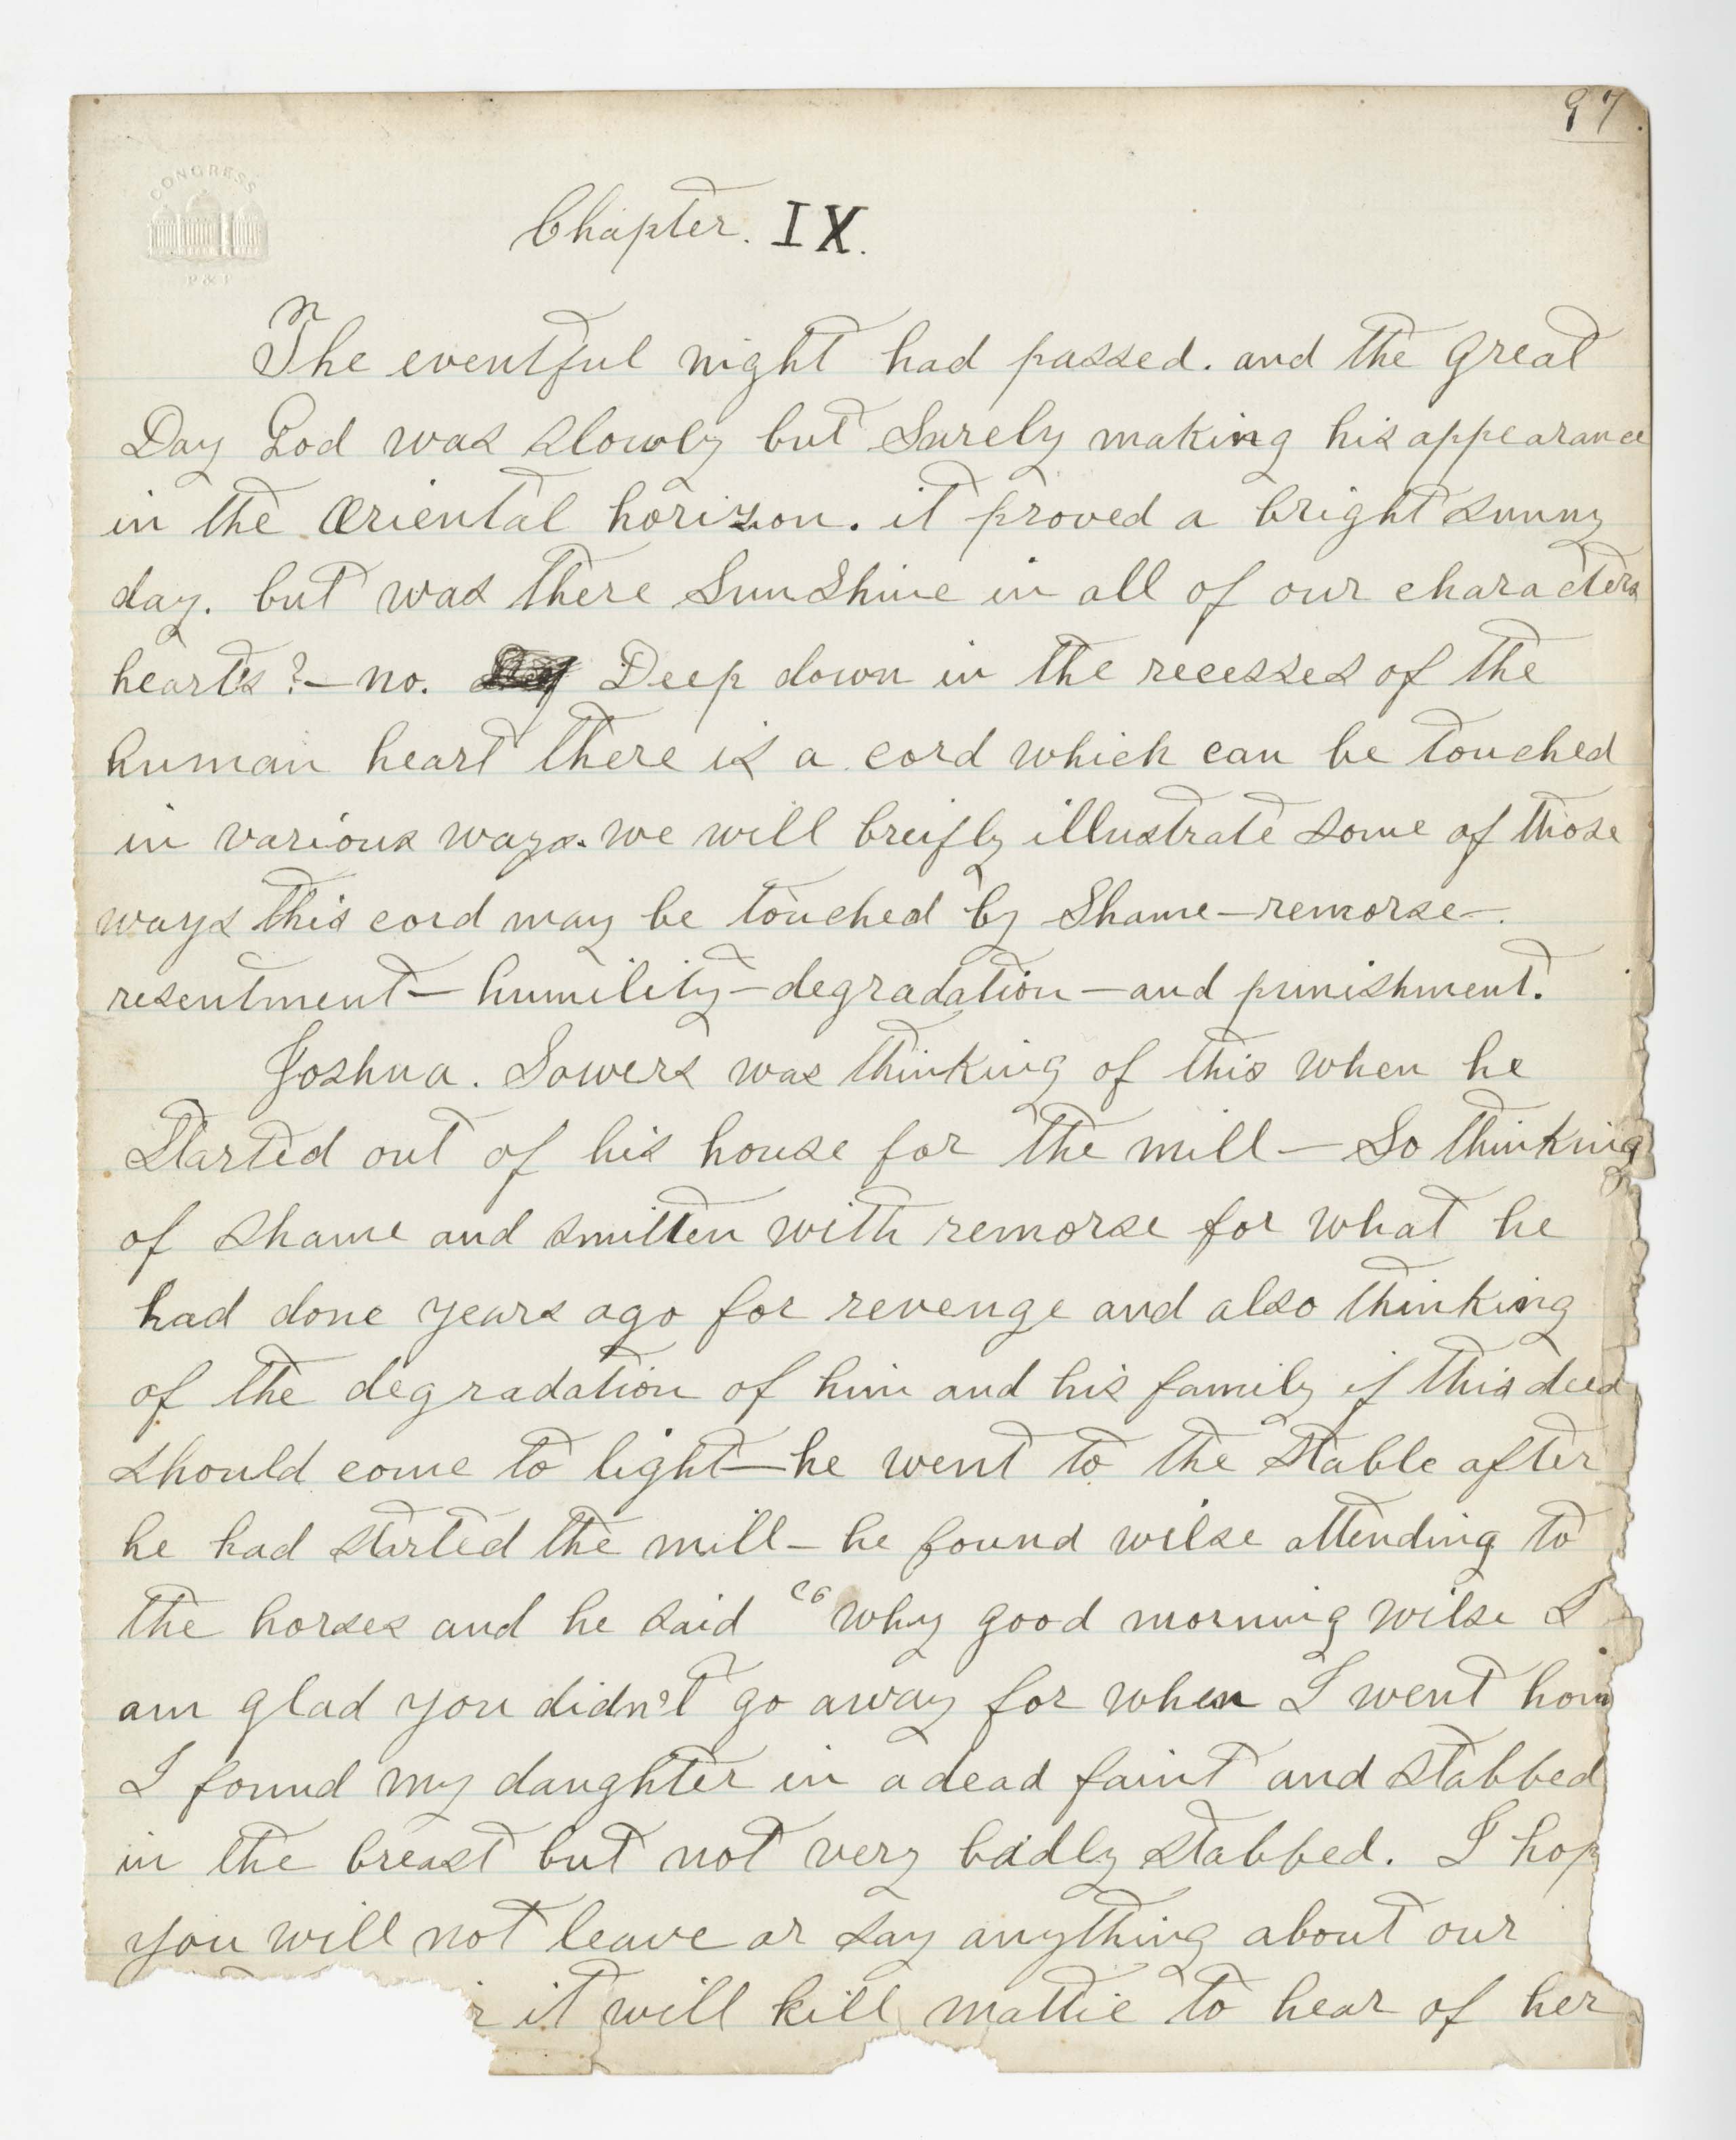 97
CONGRESS
P & P
Chapter. IX.
The eventful night had passed. and the great
Day God was slowly but Surely making his appearance
in the Oriental horizon. it proved a bright sunny
day. but was there SunShine in all of our characters
hearts? — no. Deep down in the recesses of the
human heart there is a cord which can be touched
in various ways. we will breifly illustrate some of those
ways this cord may be touched by Shame — remorse —.
resentment — humility — degradation — and punishment.
Joshua. Sowers was thinking of this when he
Started out of his house for the mill — So thinking
of shame and smitten with remorse for what he
had done years ago for revenge and also thinking
of the degradation of him and his family if this deed
should come to light — he went to the stable after
he had started the mill — he found wilse attending to
the horses and he said “why good morning wilse I
am glad you didn't go away for when I went hom
I found my daughter in a dead faint and stabbed
in the breast but not very badly stabbed. I hop
you will not leave or say anything about our
it will kill mattie to hear of her